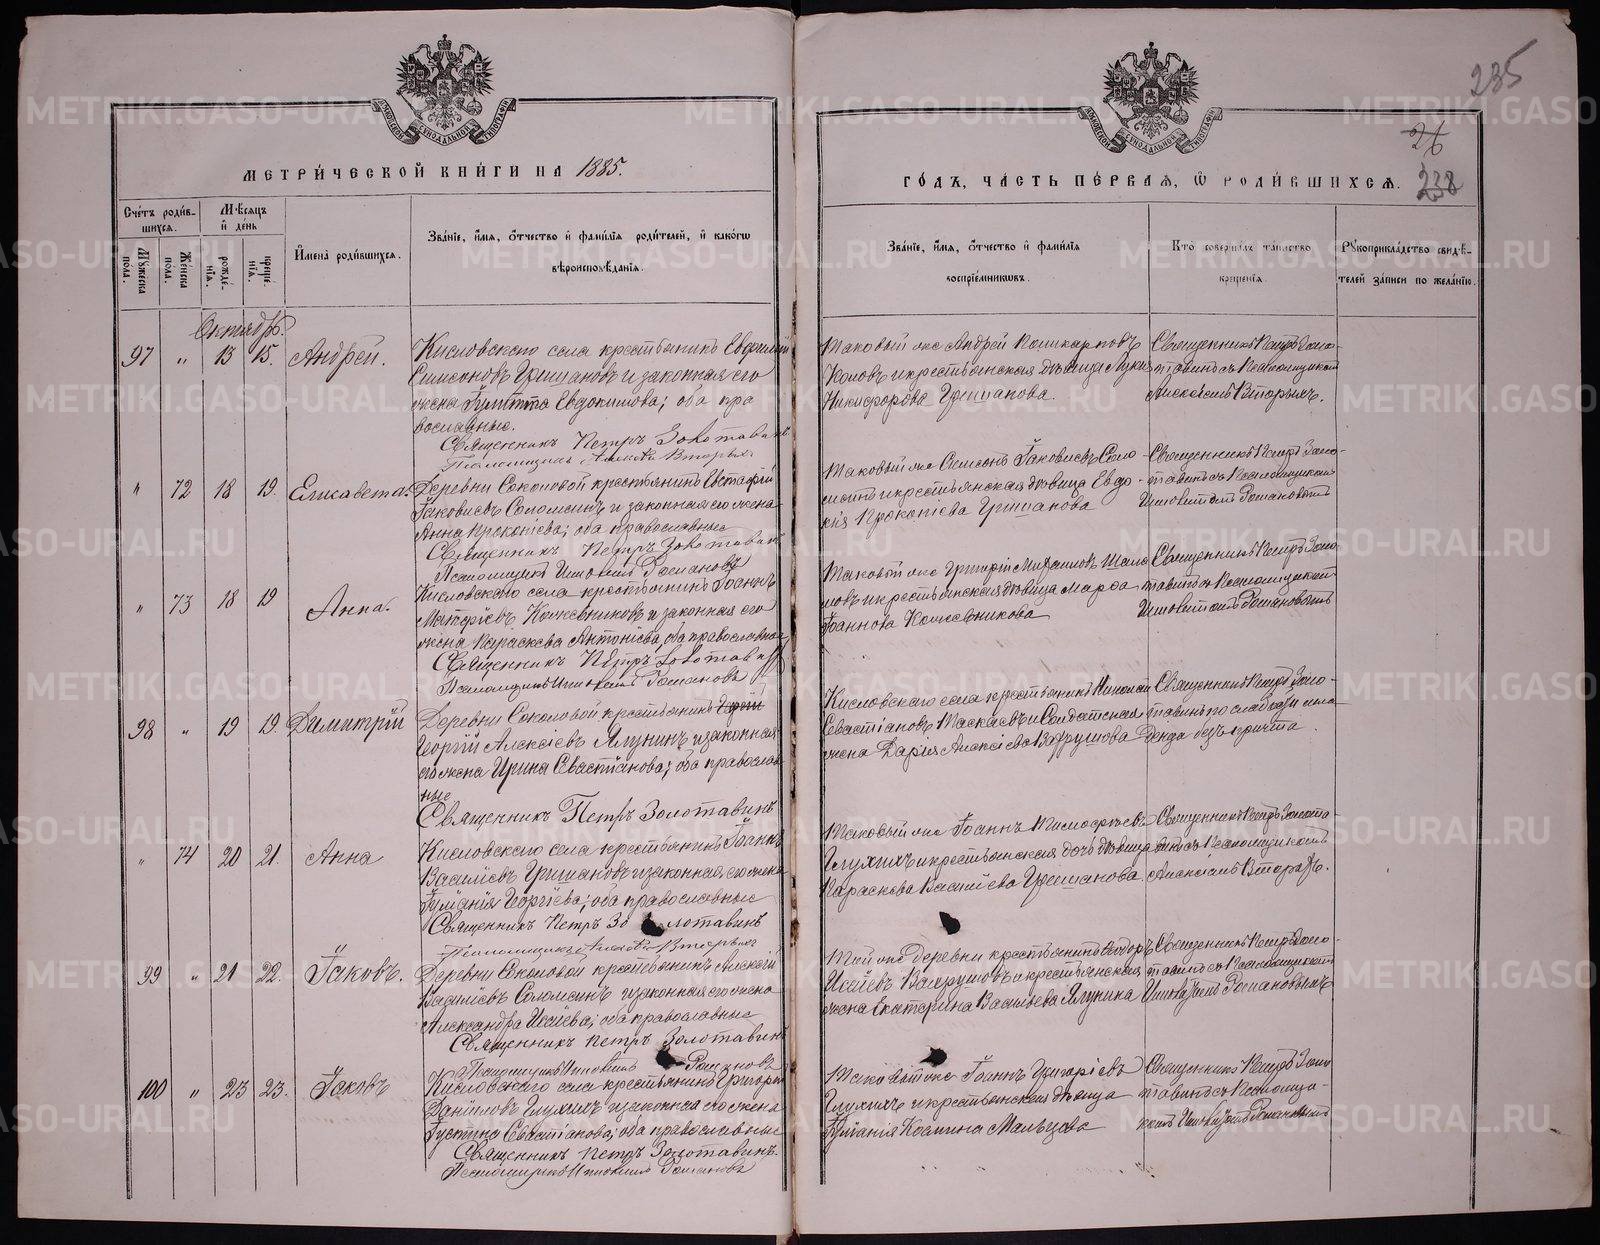 235
26
238
МЕТРИ́ЧЕСКОЙ КНИ́ГИ НА 1885.
ГО́ДЪ, ЧА́СТЬ ПЕ́РВАЯ, Ѡ РОДИ́ВШИХСЯ.
МОСКОВСКОЙ СѴНОДАЛЬНОЙ ТИПОГРАФІИ
МОСКОВСКОЙ СѴНОДАЛЬНОЙ ТИПОГРАФІИ
Сче́тъ роди́в-
шихся.
Мѣ́сяцъ
и҆ де́нь
Му́жеска
по́ла.
Же́нска
по́ла.
рожде́-
нїѧ.
креще́-
нїѧ.
И҆мена̀ роди́вшихсѧ.
Зва́нїе, и҆́мѧ, ѻ҆́тчество и҆ фами́лїѧ роди́телей, и҆ како́гѡ
вѣроисповѣ́данїѧ.
Зва́нїе, и҆́мѧ, ѻ҆́тчество и҆ фами́лїѧ
воспрїе́мникѡвъ.
Кто̀ соверша́лъ та́инство
креще́нїѧ.
Рꙋкоприкла́дство свидѣ́-
телей за́писи по жела́нїю.
Октябрь.
97 " 13 15. Андрей.
Кисловскаго села крестьянинъ Евфимій
Симеоновъ Гришановъ и законная его
жена Іулитта Евдокимова; оба пра
вославные.
Священникъ Петръ Золотавинъ
Псаломщикъ Алексѣй Вторыхъ
Таковый же Андрей
и крестьянская дѣвица
Никифорова Гришанова.
Священникъ Петръ Золо-
тавинъ съ Псаломщикомъ
Алексѣемъ Вторыхъ.
" 72 18 19. Елисавета.
Деревни Соколовой крестьянинъ Евстафій
Іаковлевъ Соломеинъ и законная его жена
Анна Прокопіева; оба православные
Священникъ Петръ Золотавинъ
Псаломщикъ Романовъ
Таковый же Симеонъ Іаковлевъ Соло
меинъ и крестьянская дѣвица Евдо-
кія Прокопіева Гришанова
Священникъ Петръ Золо-
тавинъ съ Псаломщикомъ
Романовымъ
" 73 18 19 Анна.
Кисловскаго села крестьянинъ Іоаннъ
Матфіевъ Кожевниковъ и законная его
жена Параскева Антоніева, оба православные
Священникъ Петръ Золотавинъ
Псаломщикъ Романовъ
Таковый же Григорій Михаиловъ
и крестьянская дѣвица Марѳа
Іоаннова Кожевникова
Священникъ Петръ Золо-
тавинъ съ Псаломщикомъ
Романовымъ
98 " 19 19. Димитрій
Деревни Соколовой крестьянинъ
Георгій Алексіевъ Ялунинъ и законная
его жена Ирина Севастіанова; оба православ
ные
Священникъ Петръ Золотавинъ
Кисловскаго села крестьянинъ Николай
Севастіановъ Таскаевъ и Солдатская
жена Дарія Алексіева Вахрушова
Священникъ Петръ Золо-
тавинъ по слабости мла-
денца безъ причта
" 74 20 21. Анна
Кисловскаго села крестьянинъ Іоаннъ
Василіевъ Гришановъ и законная его жена
Іуліанія Георгіева; оба православные
Священникъ Петръ Золотавинъ
Псаломщикъ Алексѣй Вторыхъ
Таковый же Іоаннъ Тимофѣевъ
Глухихъ и крестьянская дочь дѣвица
Параскева Василіева Гришанова
Священникъ Петръ Золота
винъ съ Псаломщикомъ
Алексіемъ Вторыхъ.
99 " 21 22. Іаковъ.
Деревни Соколовой крестьянинъ Алексій
Василіевъ Соломеинъ и законная его жена
Александра Исаіева; оба православные
Священникъ Петръ Золотавинъ
Псаломщикъ Романовъ
Той же деревни крестьянинъ Ѳеодоръ
Исаіевъ Вахрушовъ и крестьянская
жена Екатерина Васильева Ялунина
Священникъ Петръ Золо-
тавинъ съ Псаломщикомъ
Романовымъ
100 " 23 23. Іаковъ
Кисловскаго села крестьянинъ Григорій
Даніиловъ Глухихъ и законная его жена
Іустина Севастіанова; оба православные
Священникъ Петръ Золотавинъ.
Псаломщикъ Романовъ
Таковый же Іоаннъ Григоріевъ
Глухихъ и крестьянская дѣвица
Іуліанія Космина Мальцова
Священникъ Петръ Золо
тавинъ съ Псаломщи-
комъ Романовымъ
METRIKI.GASO-URAL.RU